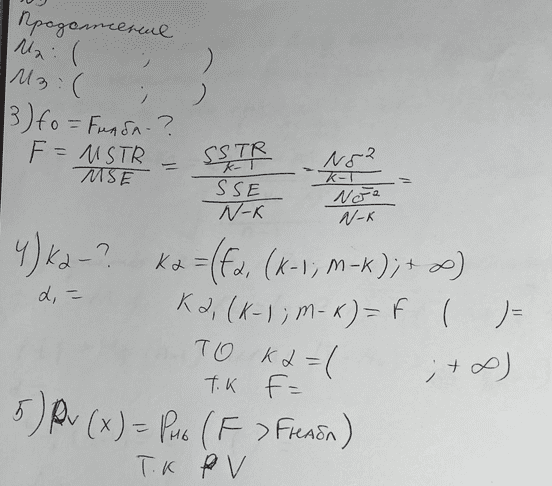 Продолжение
M2: ( ; )
M3: ( ; )
3) f0 = Fнабл - ?
F = MSTR / MSE = (SSTR / (K-1)) / (SSE / (N-K)) - (Nδ² / (K-1)) / (Nσ̄² / (N-K)) =
4) Kα - ? Kα = (fα, (K-1; m-K); +∞)
α1 = Kα, (K-1; m-K) = F ( ) =
ТО Kα = ( ; +∞)
Т.К F =
5) PV (x) = PH0 (F > Fнабл)
Т.К PV